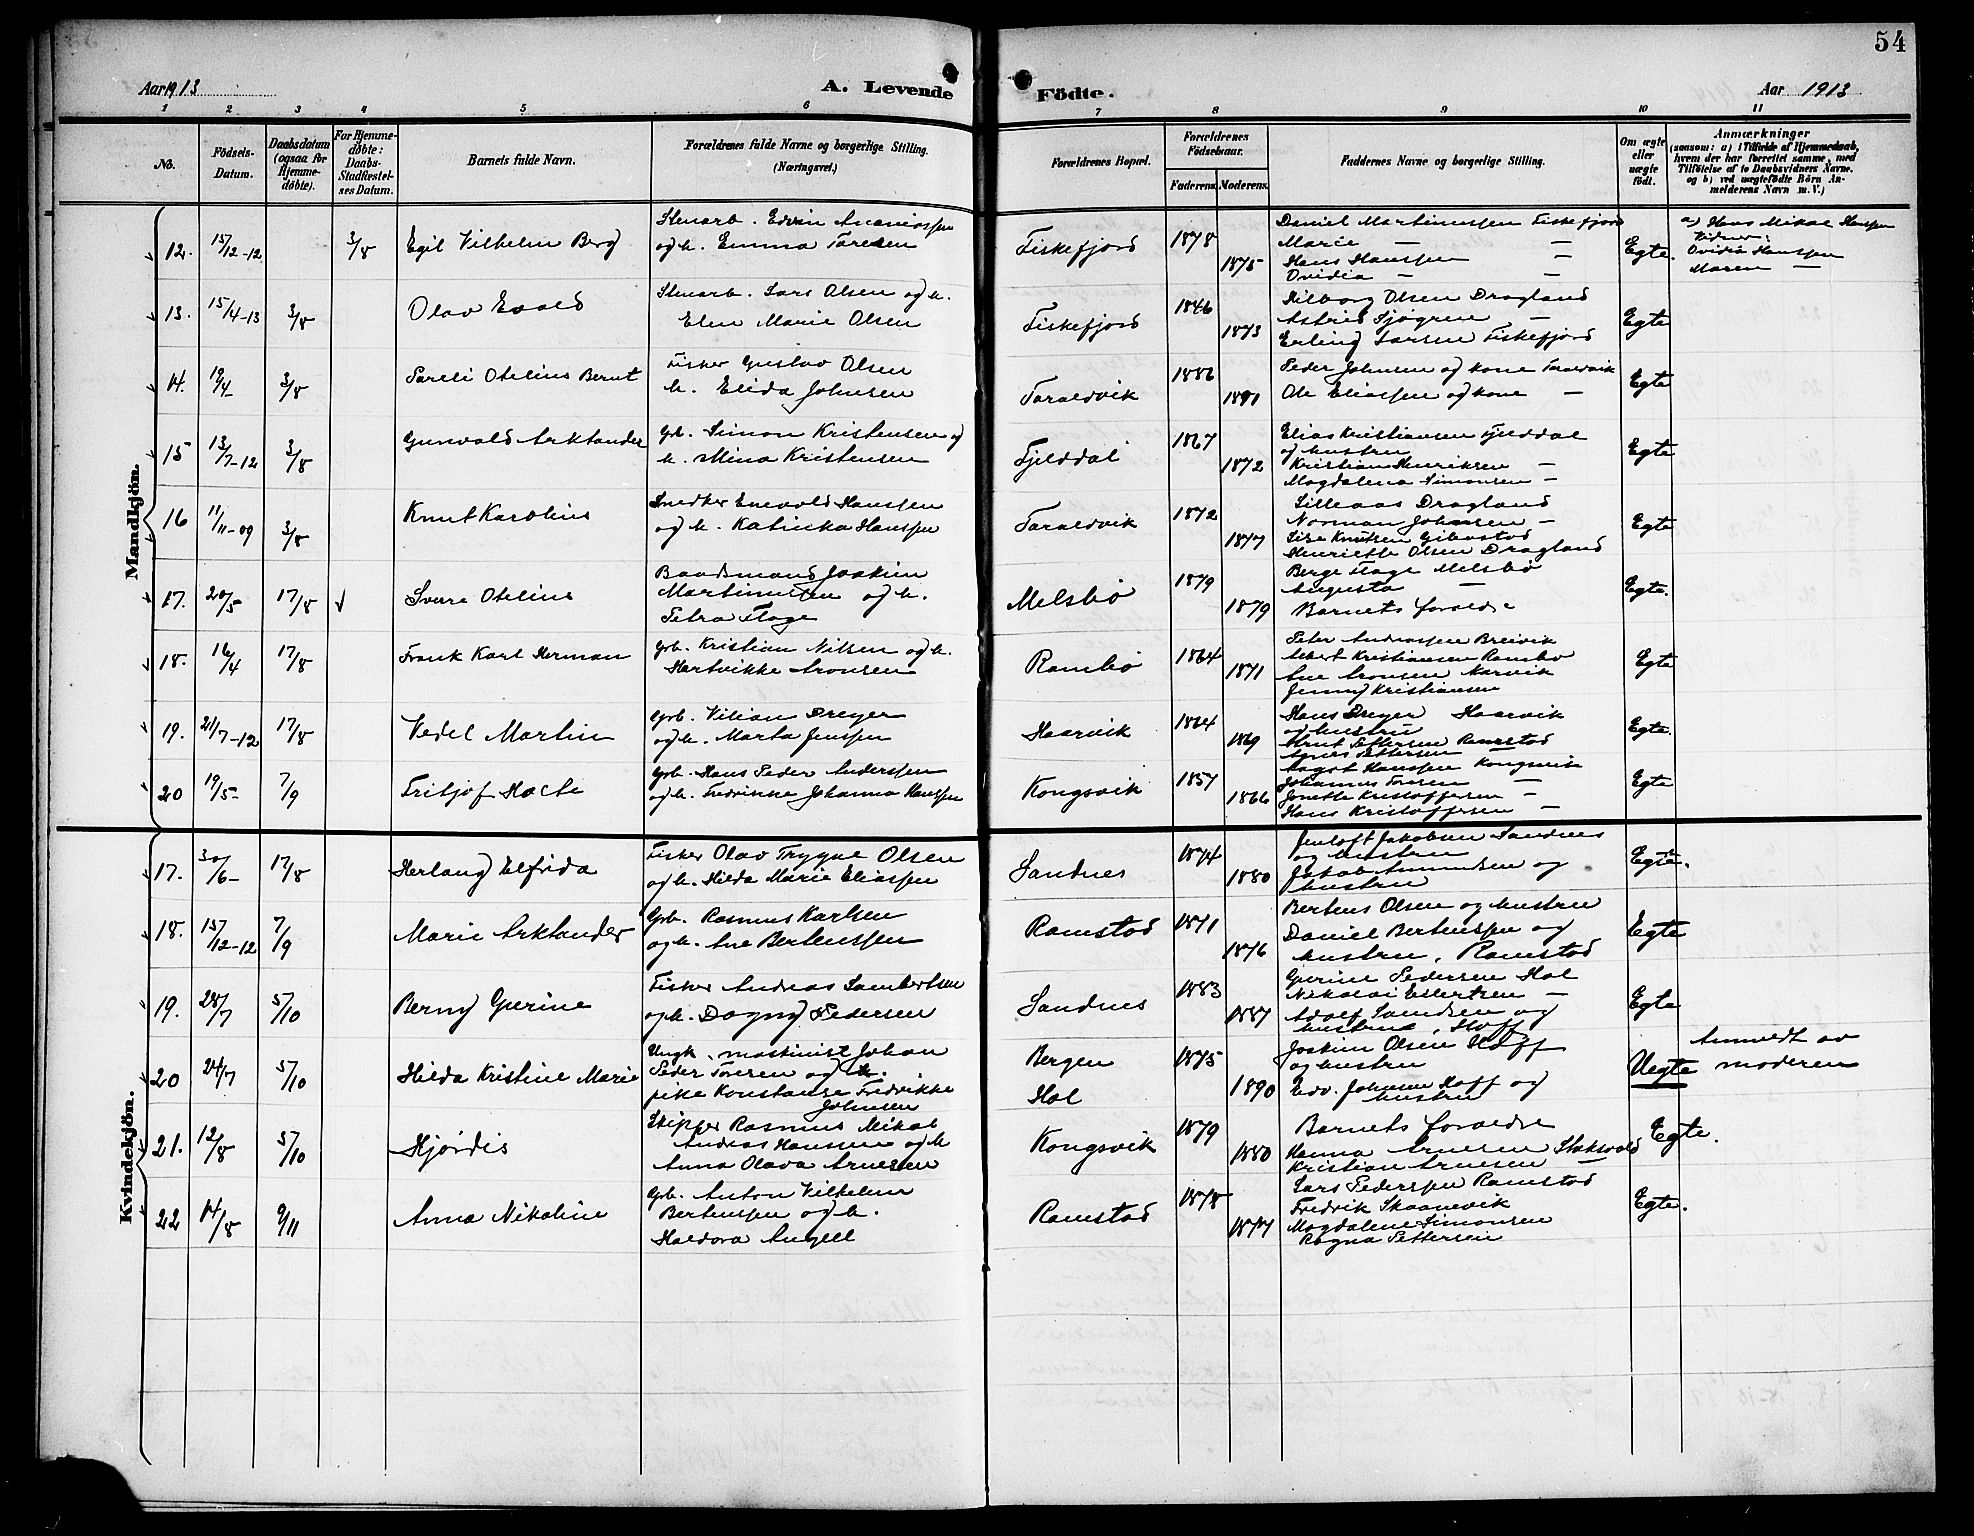 54
Aar 1913
A. Levende
Födte.
Aar 1913
1 2 3 4 5 6 7 8 9 10 11
No.
Födsels-
Datum.
Daabsdatum
(ogsaa for
Hjemme-
döbte).
For Hjemme-
döbte:
Daabs-
Stadfæstel-
ses Datum.
Barnets fulde Navn.
Forældrenes fulde Navne og borgerlige Stilling.
(Næringsvei.)
Forældrenes Bopæl.
Forældrenes
Födselsaar.
Faderens. Moderens.
Faddernes Navne og borgerlige Stilling.
Om ægte
eller
uægte
födt.
Anmærkninger
(saasom: a) i Tilfælde af Hjemmedaab,
hvem der har forrettet samme, med
Tilföielse af to Daabsvidners Navne,
og b) ved uægtefödte Börn An-
melderens Navn m. V.)
Mandkjön.
12. 15/12-12 3/8 Egil Vilhelm Berg
Stenarb. Edvin Ananiassen
og h. Emma Toresen
Fiskefjord 1878 1875
Daniel Martinussen Fiskefjord
Marie — —
Hans Hanssen —
Ovidia — —
Egte.
a) Hans Mikal Hanssen
Vidner:
Ovidia Hanssen
Maren —
13. 15/4-13 3/8 Olav Evald
Stenarb. Lars Olsen og h.
Elen Marie Olsen
Fiskefjord 1846 1873
Hilborg Olsen Dragland
Astrid Sjøgren —
Erling Larsen Fiskefjord
Egte
14. 19/4- 3/8 Sareli Otelius Bernt
Fisker Gustav Olsen
h. Elida Johnsen
Taraldvik 1886 1891
Peder Johnsen og kone Taraldvik
Ole Eliassen og kone —
Egte
15 13/7-12 3/8 Gunvald Arktander
Grb. Simon Kristensen og
h. Mina Kristensen
Fjelddal 1867 1872
Elias Kristiansen Fjelddal
og hustru
Kristian Henriksen —
Magdalena Simonsen —
Egte
16 11/11-09 3/8 Knut Karolius
Snedker Enevold Hanssen
og h. Katinka Hanssen
Taraldvik 1872 1877
Lilleaas Dragland
Norman Johansen —
Lise Knutsen Gibostad
Henriette Olsen Dragland
Egte
17. 20/5 17/8 Sverre Otelius
Baadsmand Joakim
Martinussen og h.
Petra Hage
Melsbø 1879 1879
Berge Hage Melsbø
Augusta —
Barnets foreldre
Egte.
18. 16/4 17/8 Frank Karl Herman
Grb. Kristian Nilsen og h.
Hartvikke Aronsen
Rambø 1864 1871
Peter Andreassen Breivik
Albert Kristiansen Rambø
Ane Aronsen Narvik
Jenny Kristiansen
Egte
19. 21/7-12 17/8 Vedel Martin
Grb. Vilian Dreyer
og h. Marta Jenssen
Haarvik 1864 1869
Hans Dreyer Haarvik
og hustru
Knut Pettersen Ramstad
Agnes Pettersen
Egte.
20 19/5- 7/9 Fritjof Hacte
Grb. Hans Peder Anderssen
og h. Fredrikke Johanna Hanssen
Kongsvik 1857 1866
Aagot Hanssen Kongsvik
Johannes Toresen —
Jonette Kristoffersen —
Hans Kristoffersen —
Egte
Kvindekjön.
17. 30/6- 17/8 Herlaug Elfrida
Fisker Olav Trygve Olsen
og h. Hilda Marie Eliassen
Sandnes 1874 1880
Jentoft Jakobsen Sandnes
og hustru
Jakob Amundsen og
hustru
Egte.
18. 15/12-12 7/9 Marie Arktander
Grb. Rasmus Karlsen
og h. Ane Bertenssen
Ramstad 1871 1876
Bertens Olsen og hustru
Daniel Bertenssen og
hustru, Ramstad
Egte
19. 28/7 5/10 Berny Gjerine
Fisker Andreas Lambertsen
og h. Dagny Pedersen
Sandnes 1883 1887
Gjerine Pedersen Hol
Nikolai Eilertsen —
Adolf Lamdsen og
hustru, Hoff
Egte
20 24/7 5/10 Hilda Kristine Marie
Ungk. maskinist Johan
Peder Toresen og
pike Konstanse Fredrikke
Johnsen
Bergen
Hol
1875 1890
Joakim Olsen Hoff
og hustru
Edv. Johnsen Hoff og
hustru
Uegte
Anmeldt av
moderen
21. 12/8 5/10 Hjørdis
Skipper Rasmus Mikal
Andreas Hanssen og h
Anna Olava Arnesen
Kongsvik 1879 1880
Barnets foreldre
Hanna Arnesen Stoksvold
Kristian Arnesen —
Egte.
22 14/8 9/11 Anna Nikoline
Grb. Anton Vilhelm
Bertenssen og h.
Haldora Angell
Ramstad 1878 1877
Lars Pederssen Ramstad
Fredrik Skaanevik
Magdalene Simonsen
Ragna Pettersen
Egte.